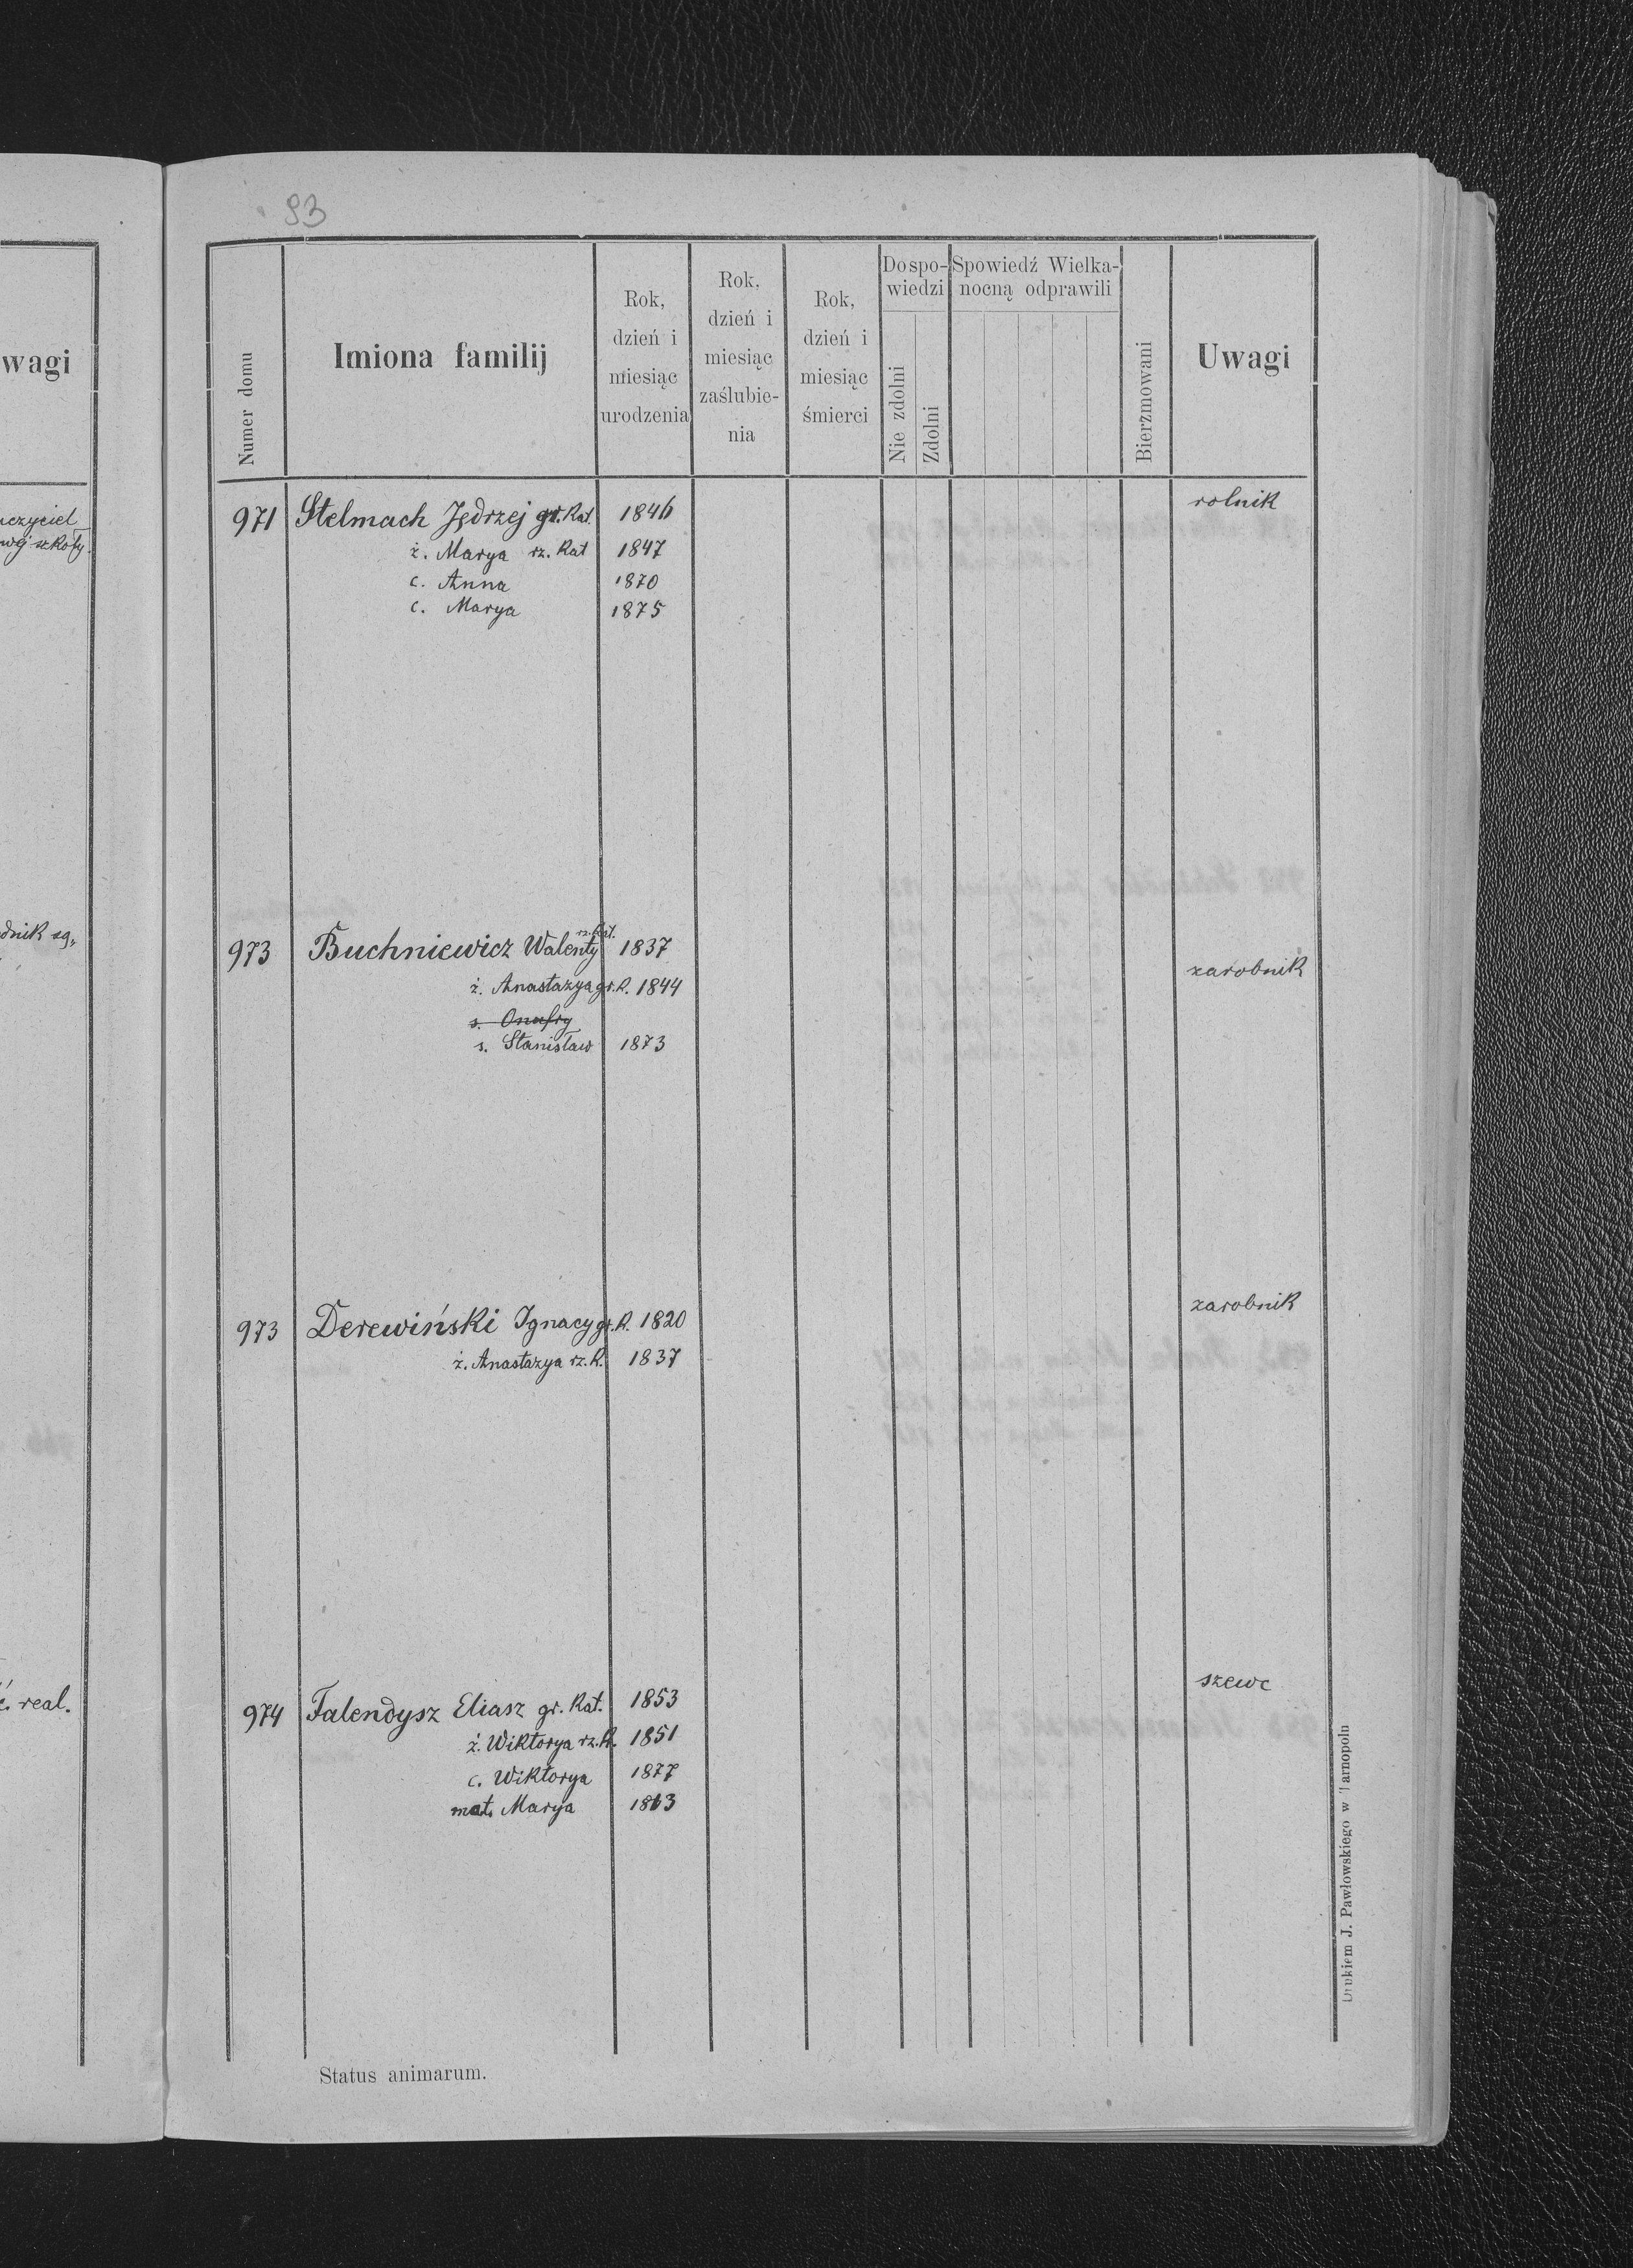 93
wagi
Numer domu
Imiona familij
Rok, dzień i miesiąc urodzenia
Rok, dzień i miesiąc zaślubie-nia
Rok, dzień i miesiąc śmierci
Do spo-wiedzi
Nie zdolni
Zdolni
Spowiedź Wielka-nocną odprawili
Bierzmowani
Uwagi
971 Stelmach Jędrzej gr. Kat. 1846 rolnik
ż. Marya rz. Kat 1847
c. Anna 1870
c. Marya 1875
973 Buchniewicz Walenty rz. Kat. 1837 zarobnik
ż. Anastazya gr. K. 1844
s. Onufry
s. Stanisław 1873
973 Derewiński Ignacy gr. K. 1820 zarobnik
ż. Anastazya rz. K. 1837
974 Talendysz Eliasz gr. Kat. 1853 szewc
ż. Wiktorya rz. K. 1851
c. Wiktorya 1877
mat. Marya
real.
Status animarum.
Drukiem J. Pawłowskiego w Tarnopolu